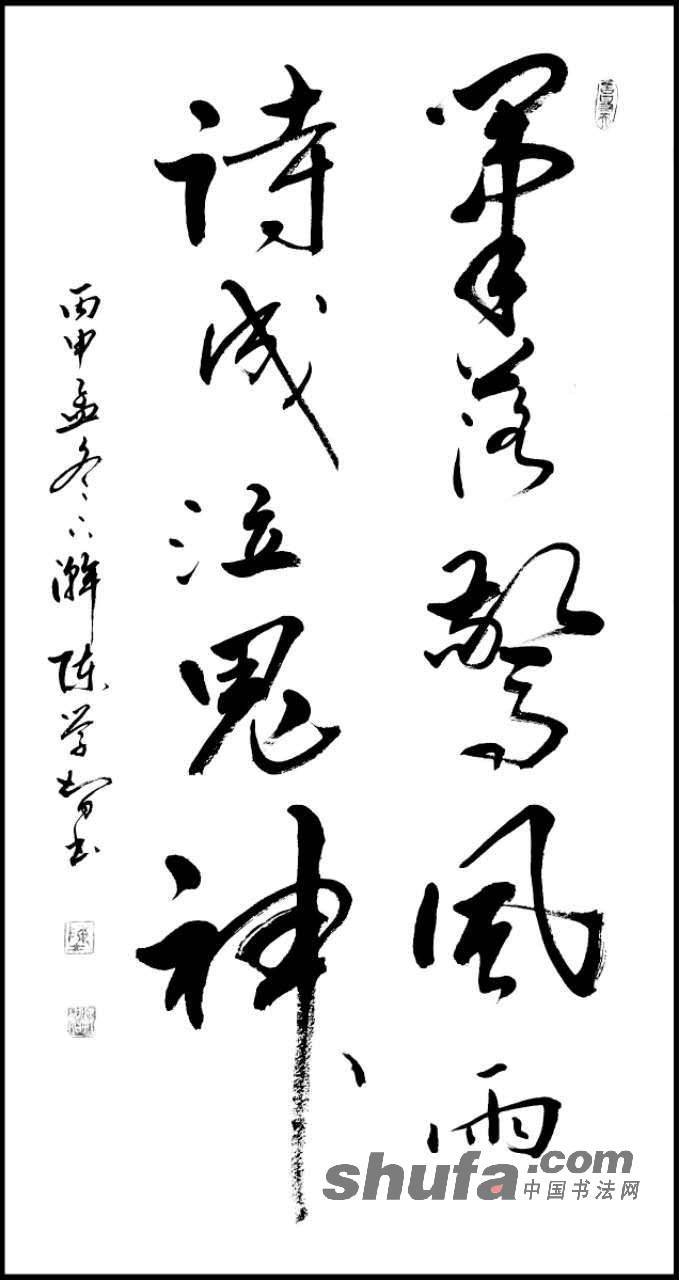 筆落驚風雨
詩成泣鬼神
丙申孟冬下澣陈学智书
shufa.com
中国书法网